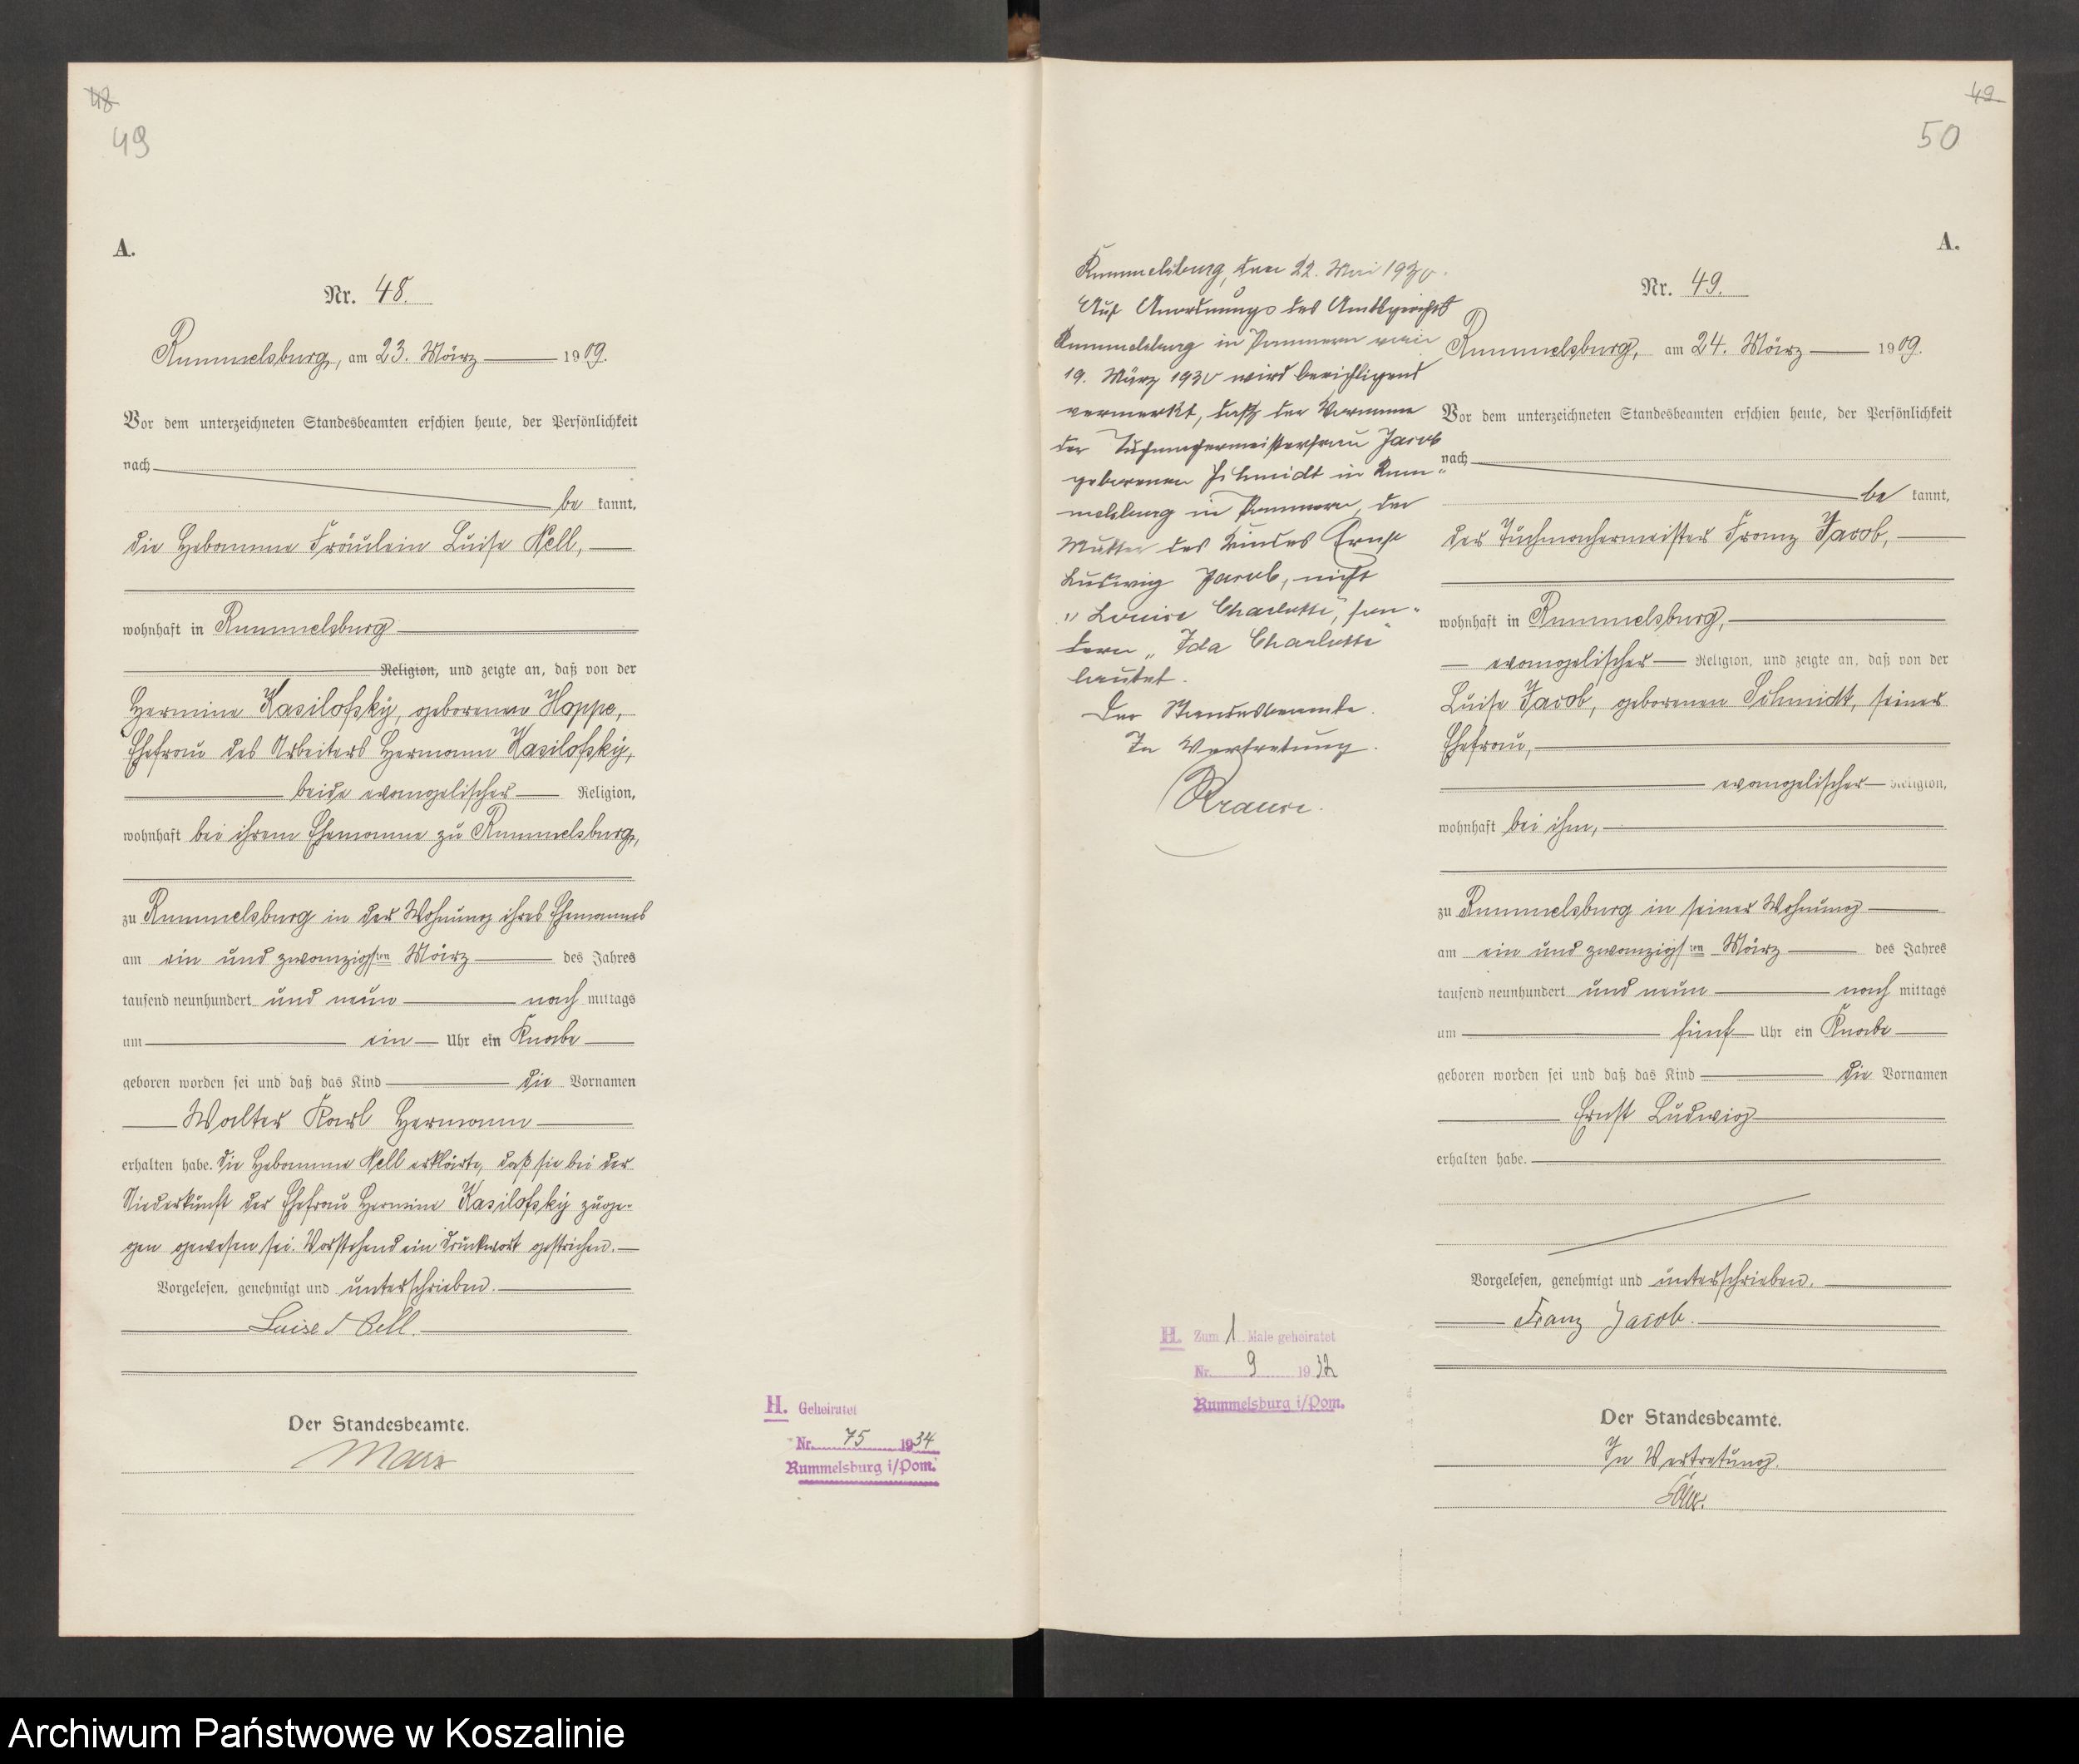 48
49
A.
Nr. 48.
Rummelsburg, am 23. März 1909.
Vor dem unterzeichneten Standesbeamten erschien heute, der Persönlichkeit
nach
be kannt,
die Hebamme Fräulein Luise Nell,
wohnhaft in Rummelsburg
Religion, und zeigte an, daß von der
Hermine Kasilofsky, geborenen Hoppe,
Ehefrau des Arbeiters Hermann Kasilofsky,
beide evangelischer Religion,
wohnhaft bei ihrem Ehemanne zu Rummelsburg,
zu Rummelsburg in der Wohnung ihres Ehemannes
am ein und zwanzigsten März des Jahres
tausend neunhundert und neun nach mittags
um ein Uhr ein Knabe
geboren worden sei und daß das Kind die Vornamen
Walter Karl Hermann
erhalten habe. Die Hebamme Nell erklärte, daß sie bei der
Niederkunft der Ehefrau Hermine Kasilofsky zuge-
gen gewesen sei. Vorstehend ein Druckwort gestrichen.
Vorgelesen, genehmigt und unterschrieben.
Luise Nell.
Der Standesbeamte.
H. Geheiratet
Nr. 75 1934
Rummelsburg i/Pom.
49
50
A.
Rummelsburg, den 22. Mai 1930.
Auf Anordnung des Amtsgerichts
Rummelsburg in Pommern vom
19. März 1930 wird berichtigend
vermerkt, daß der Vorname
der Tuchmachermeisterfrau Jacob
geborenen Schmidt in Rum-
melsburg in Pommern, der
Mutter des Kindes Ernst
Ludwig Jacob, nicht
"Louise Charlotte", son-
dern "Ida Charlotte"
lautet.
Der Standesbeamte.
In Vertretung.
Krause.
Nr. 49.
Rummelsburg, am 24. März 1909.
Vor dem unterzeichneten Standesbeamten erschien heute, der Persönlichkeit
nach
be kannt,
der Tuchmachermeister Franz Jacob,
wohnhaft in Rummelsburg,
evangelischer Religion, und zeigte an, daß von der
Luise Jacob, geborenen Schmidt, seiner
Ehefrau,
evangelischer Religion,
wohnhaft bei ihm,
zu Rummelsburg in seiner Wohnung
am ein und zwanzigsten März des Jahres
tausend neunhundert und neun nach mittags
um fünf Uhr ein Knabe
geboren worden sei und daß das Kind die Vornamen
Ernst Ludwig
erhalten habe.
Vorgelesen, genehmigt und unterschrieben.
Franz Jacob.
H. Zum 1 Male geheiratet
Nr. 9 1932
Rummelsburg i/Pom.
Der Standesbeamte.
In Vertretung.
Archiwum Państwowe w Koszalinie